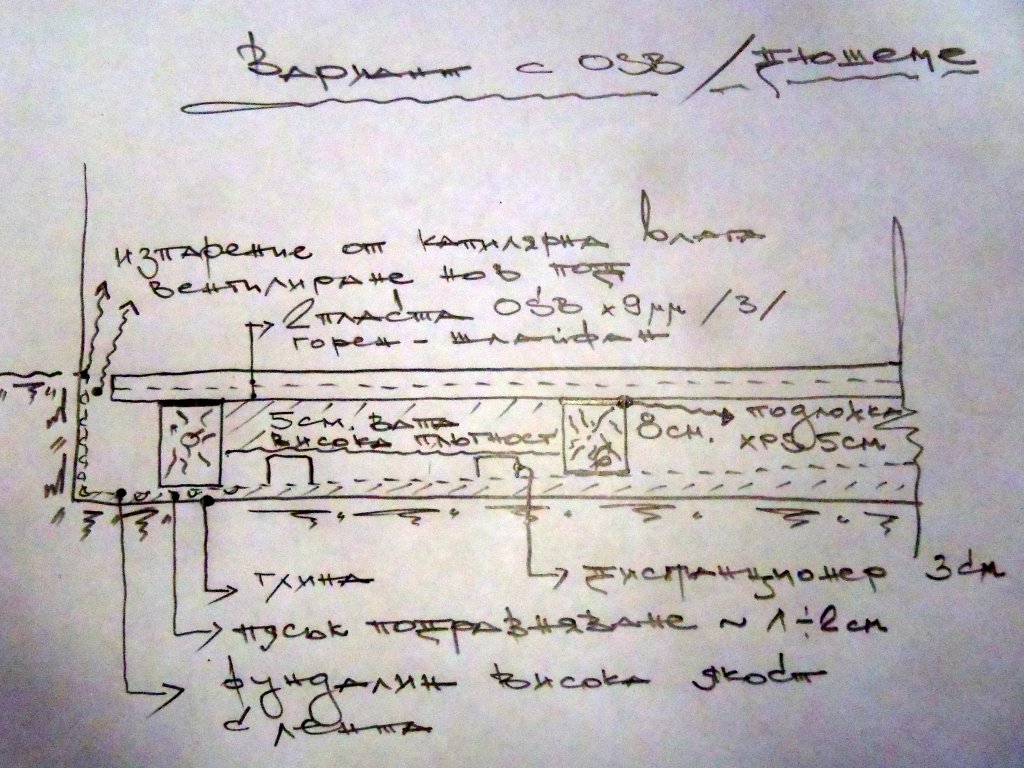 Вариант с OSB / Дюшеме
изпарение от капилярна влага
вентилиране нов под
2 пласта OSB x 9 мм /3/
горен - шлайфан
5 см. вата
висока плътност
8 см.
подложка
XPS 5 см
глина
дистанционер
3 см
пясък подравняване ~ 1÷2 см
фундалин висока якост
с лента